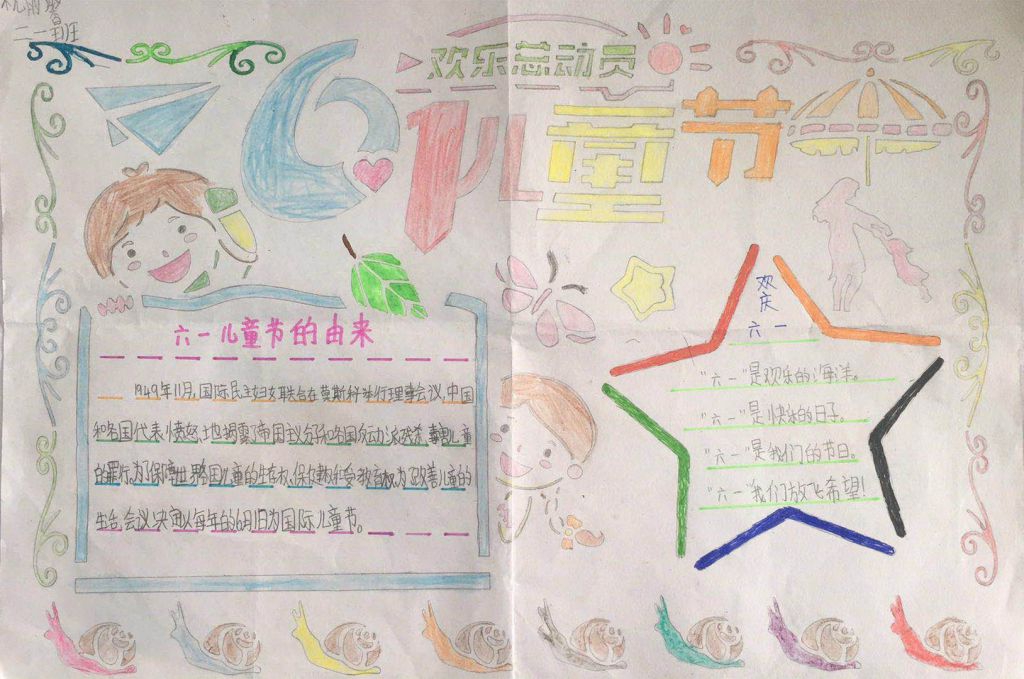 二一班
欢乐总动员
61儿童节
六一儿童节的由来
1949年11月,国际民主妇女联合会在莫斯科举行理事会议,中国
和各国代表愤怒地揭露了帝国主义分子和各国反动派残杀、毒害儿童
的罪行。为了保障世界各国儿童的生存权、保健权和受教育权,为了改善儿童的
生活,会议决定以每年的6月1日为国际儿童节。
欢庆
六一
"六一"是欢乐的海洋。
"六一"是快乐的日子。
"六一"是我们的节日。
"六一"我们放飞希望!